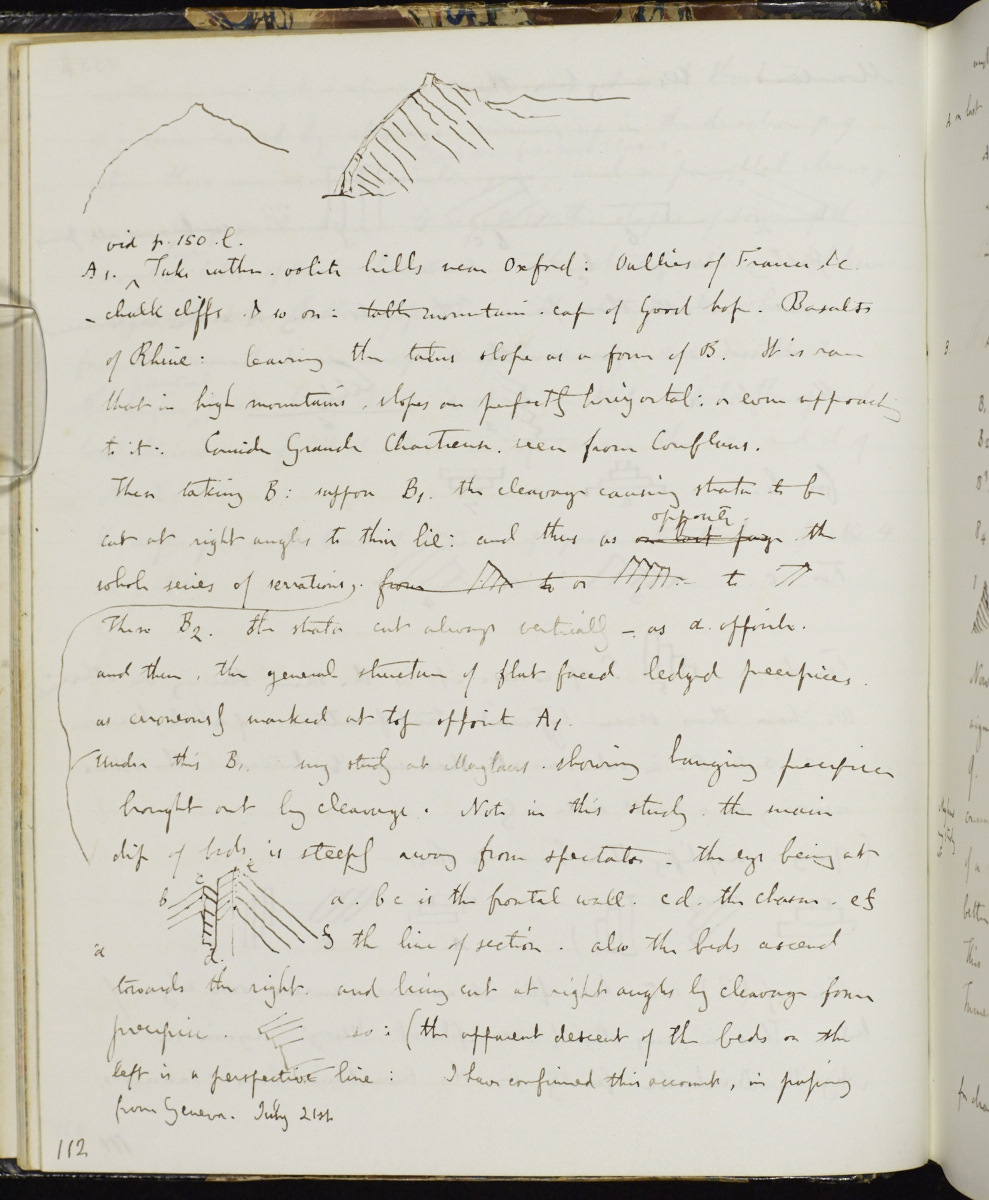 vid p. 150. l.
A1. Take rather. oolite hills near Oxford: Vallies of France &c.
- chalk cliffs. & so on: table mountain. cape of Good hope. Basalts
of Rhine: leaving the talus slope as a form of B. It is rare
that in high mountains, slopes are perfectly horizontal: or even approach
to it:. Consider Grande Chartreuse. seen from Conflans.
Then taking B: suppose B1. the cleavage causing strata to be
opposite.
cut at right angles to their lie: and thus as on last page the
whole series of serrations. from to or to
Then B2. the strata cut always vertically - as a. opposite.
and then, the general structure of flat faced ledged precipices.
as erroneously marked at top opposite A1.
Under this B1. my study at Maglans. showing hanging precipice
brought out by cleavage. Note in this study. the main
dip of beds is steeply away from spectator. the eye being at
a. bc is the frontal wall. cd. the chasm. ef
the line of section. also the beds ascend
b c e d f a
towards the right. and being cut at right angles by cleavage form
precipice. so: (the apparent descent of the beds on the
left is a perspective line: I have confirmed this account, in passing
from Geneva. July 21st
112